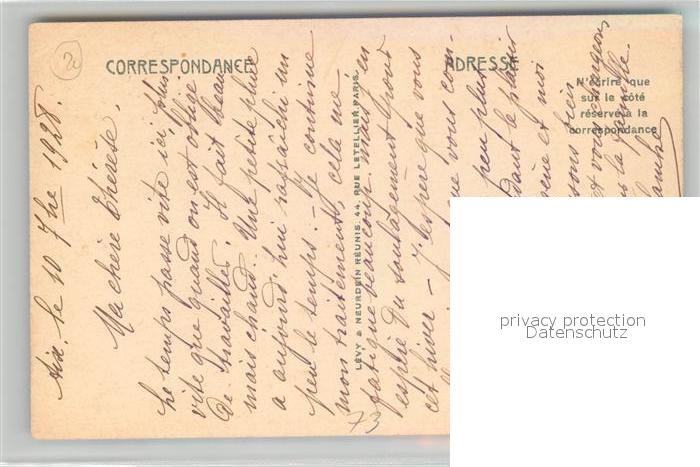 20
CORRESPONDANCE
ADRESSE
N'écrire que
sur le côté
réservé à la
correspondance
LÉVY & NEURDEIN RÉUNIS, 44, RUE LETELLIER, PARIS
Aix. le 10 7bre 1928.
Ma chère Thérèse,
Le temps passe vite ici, plus
vite que quand on est obligé
de travailler. Il fait beau
mais chaud. Une petite pluie
a aujourd'hui rafraîchi un
peu le temps. - Je continue
mon traitement, cela me
fatigue beaucoup mais j'en
espère du soulagement pour
cet hiver - J'espère que vous
que vous com-
peu plus
le plaisir
et moi
sons bien
et vous
la famille.
73
privacy protection
Datenschutz